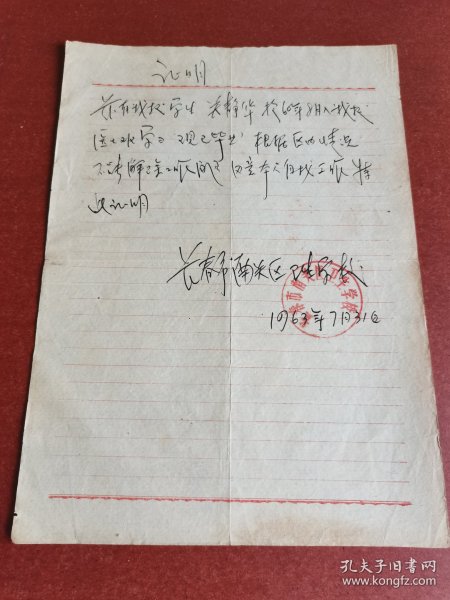 证明
兹有我校学生 关静华 於60年8月入我校
医士班学习 现已毕业 根据区的情况
不能解决工作问题 同意本人自找工作 特
此证明
长春市南关区卫生学校
1963年7月31日
孔夫子旧书网
www.kongfz.com